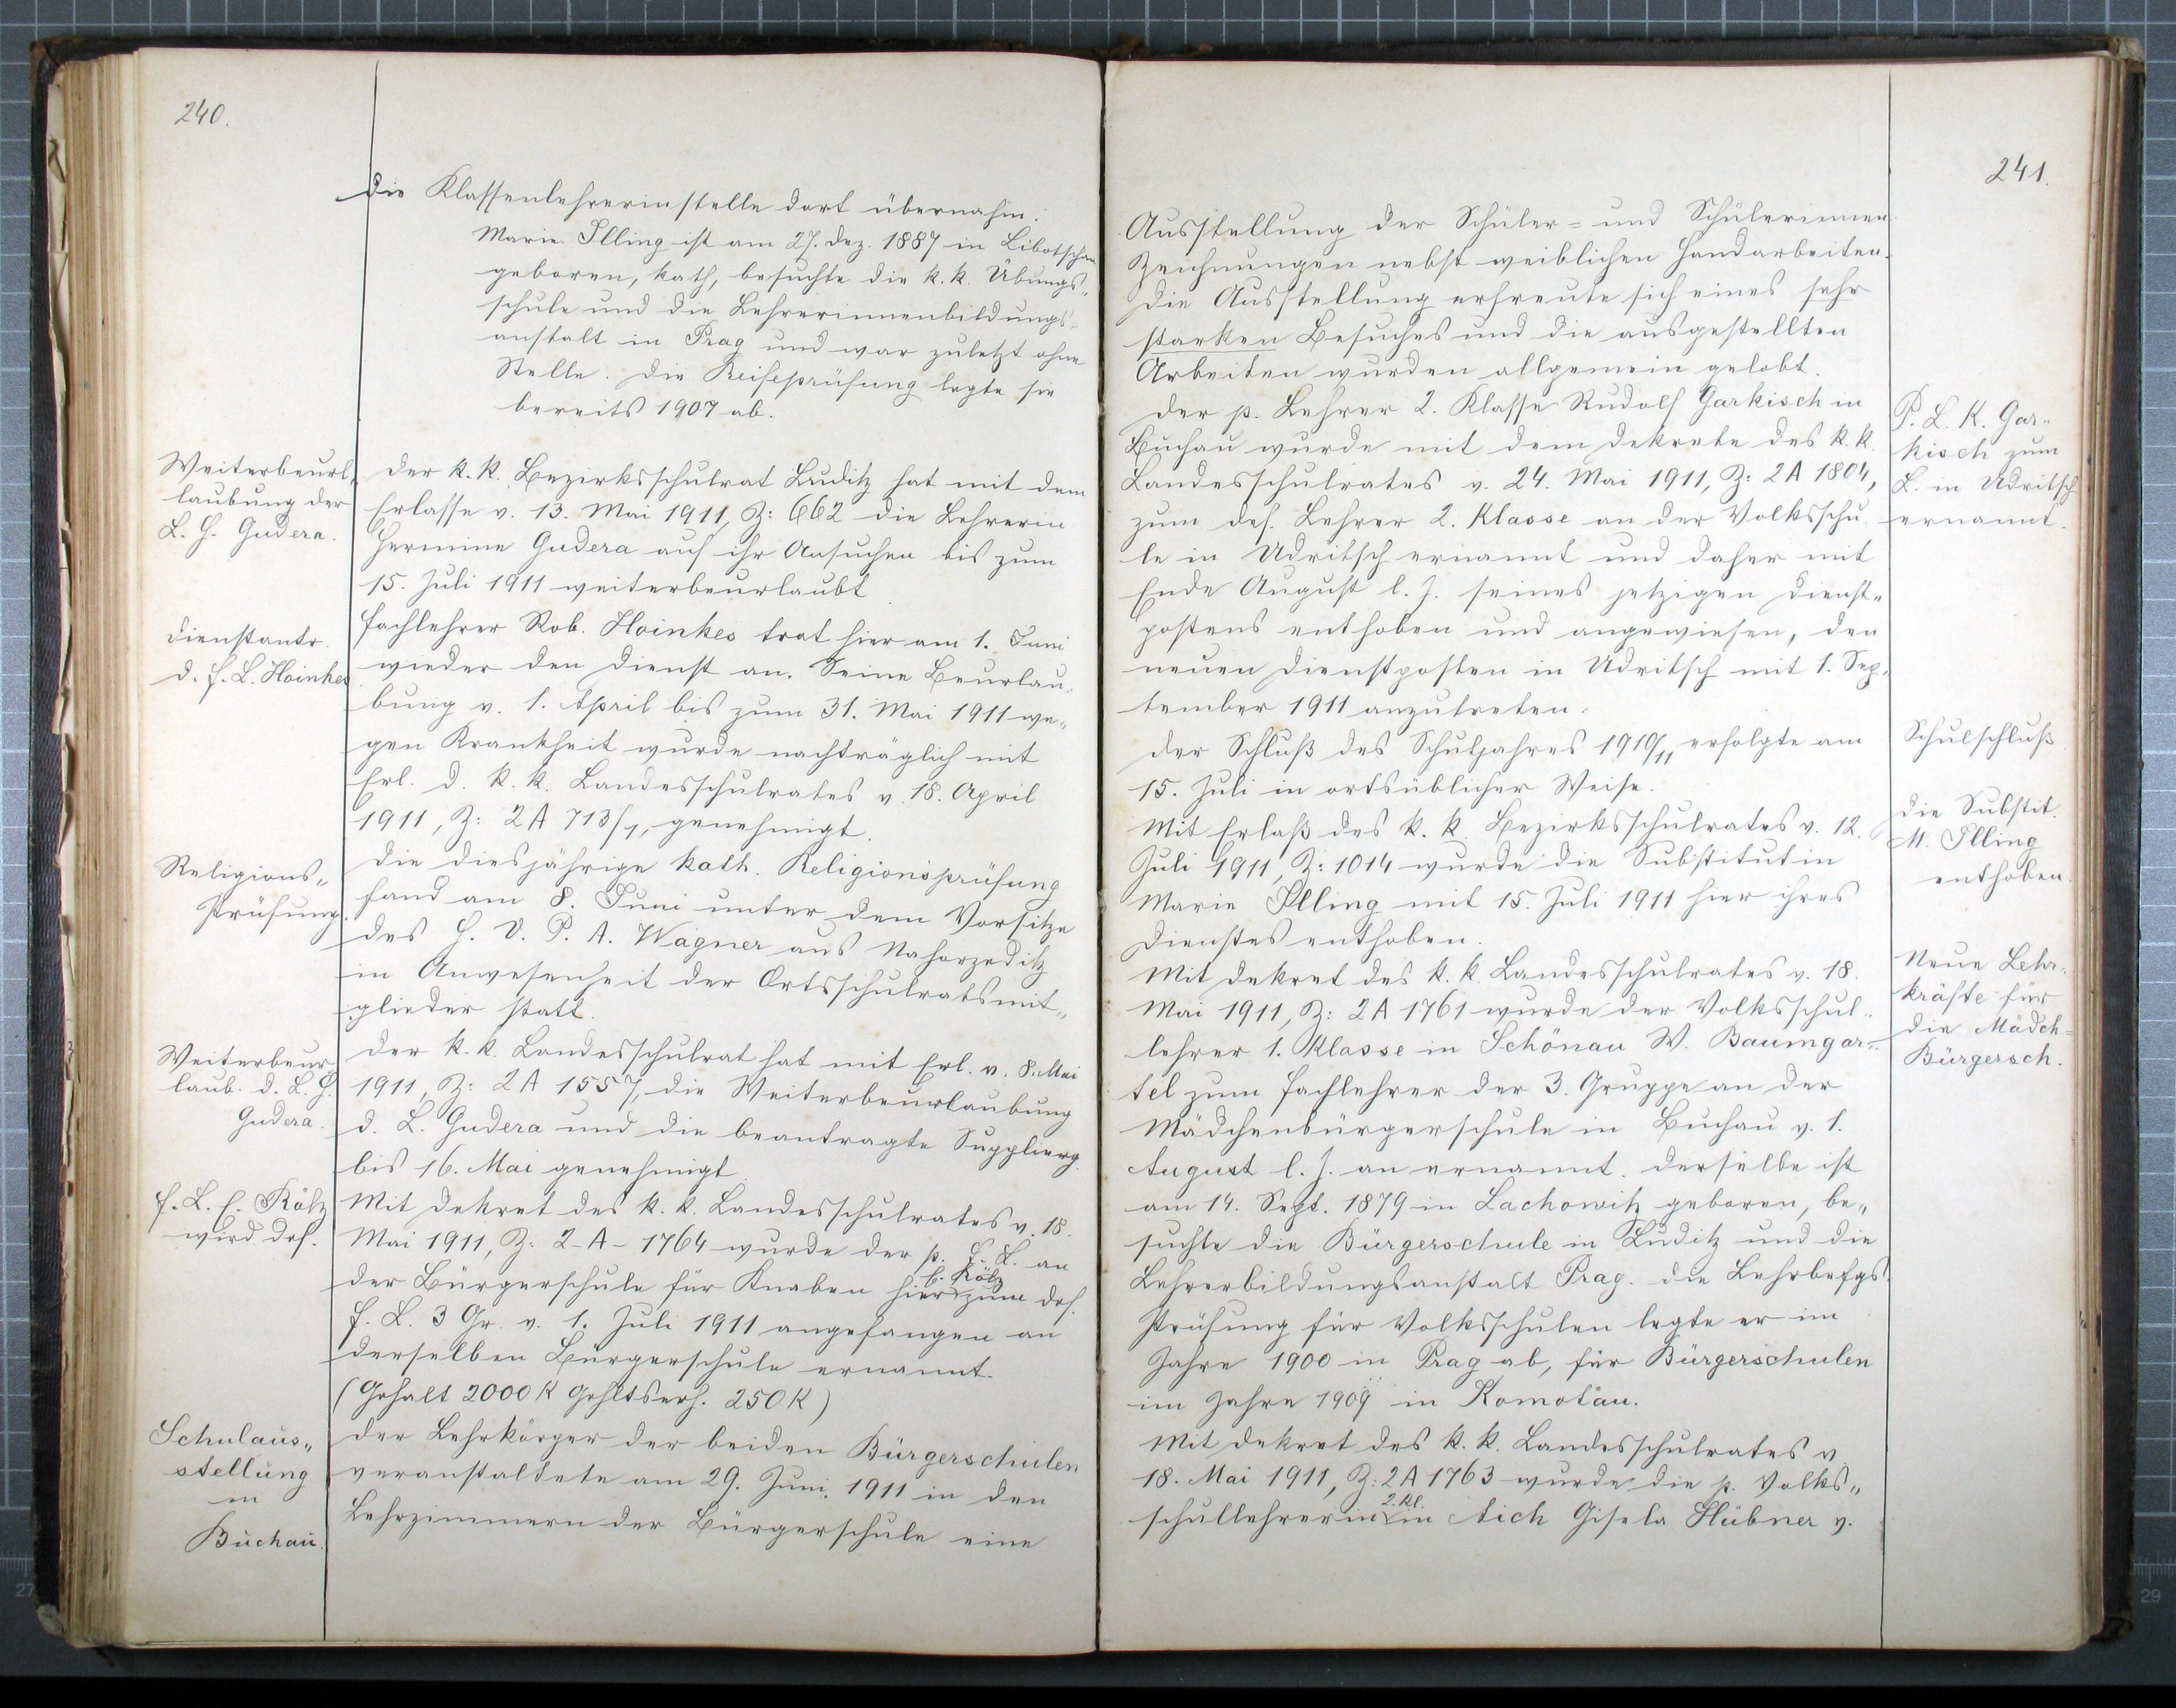 240.
die Klassenlehrerinstelle dort übernahm.
Marie Illing ist am 27. Dez. 1887 in Libotschan
geboren, kath, besuchte die k. k. Übungs„
schule und die Lehrerinnenbildungs„
anstalt in Prag und war zuletzt ohne
Stelle. Die Reifeprüfung legte sie
bereits 1907 ab.
Weiterbeurl„
laubung der
L. H. Gudera.
Der k. k. Bezirksschulrat Luditz hat mit dem
Erlasse v. 13. Mai 1911, Z: 662 die Lehrerin
Hermine Gudera auf ihr Ansuchen bis zum
15. Juli 1911 weiterbeurlaubt
Dienstantr.
d. F. L. Hoinkes
Fachlehrer Rob. Hoinkes trat hier am 1. Juni
wieder den Dienst an. Seine Beurlau„
bung v. 1. April bis zum 31. Mai 1911 we„
gen Krankheit wurde nachträglich mit
Erl. d. k. k. Landesschulrates v. 18. April
1911, Z: 2 A 713/1, genehmigt.
Religions„
prüfung.
Die diesjährige kath. Religionsprüfung
fand am 8. Juni unter dem Vorsitze
des H. V. P. A. Wagner aus Nahorzeditz
in Anwesenheit der Ortsschulratsmit„
glieder statt.
Weiterbeur„
laub. d. L. H.
Gudera.
Der k. k. Landesschulrat hat mit Erl. v. 8. Mai
1911, Z: 2 A 1557, die Weiterbeurlaubung
d. L. Gudera und die beantragte Supplierg.
bis 16. Mai genehmigt
F. L. E. Rötz
wird def.
Mit Dekret des k. k. Landesschulrates v. 18.
Mai 1911, Z: 2-A-1764 wurde der p. F. L. an
der Bürgerschule für Knaben hier E. Rötz zum def.
F. L. 3 Gr. v. 1. Juli 1911 angefangen an
derselben Bürgerschule ernannt.
(Gehalt 2000 K Gehltserh. 250 K)
Schulaus„
stellung
in
Buchau.
Der Lehrkörper der beiden Bürgerschulen
veranstaltete am 29. Juni 1911 in den
Lehrzimmern der Bürgerschule eine
241.
Ausstellung der Schüler= und Schülerinnen
Zeichnungen nebst weiblichen Handarbeiten.
Die Ausstellung erfreute sich eines sehr
starken Besuches und die ausgestellten
Arbeiten wurden allgemein gelobt.
Der p. Lehrer 2. Klasse Rudolf Garkisch in
Buchau wurde mit dem Dekrete des k. k.
Landesschulrates v. 24. Mai 1911, Z: 2 A 1804,
zum def. Lehrer 2. Klasse an der Volksschu„
le in Udritsch ernannt und daher mit
Ende August l. J. seines jetzigen Dienst„
postens enthoben und angewiesen, den
neuen Dienstposten in Udritsch mit 1. Sep„
tember 1911 anzutreten.
P. L. R. Gar„
kisch zum
L. in Udritsch
ernannt.
Der Schluß des Schuljahres 1910/11 erfolgte am
15. Juli in ortsüblicher Weise.
Schulschluß
Mit Erlaß des k. k. Bezirksschulrates v. 12.
Juli 1911, Z: 1014 wurde die Substitutin
Marie Illing mit 15. Juli 1911 hier ihres
Dienstes enthoben.
Die Substit.
M. Illing
enthoben.
Mit Dekret des k. k. Landesschulrates v. 18.
Mai 1911, Z: 2 A 1761 wurde der Volksschul„
lehrer 1. Klasse in Schönau W. Baumgar„
tel zum Fachlehrer der 3. Gruppe an der
Mädchenbürgerschule in Buchau v. 1.
August l. J. an ernannt. Derselbe ist
am 14. Sept. 1879 in Lachowitz geboren, be„
suchte die Bürgerschule in Luditz und die
Lehrerbildungsanstalt Prag. Die Lehrbefgs.
prüfung für Volksschulen legte er im
Jahre 1900 in Prag ab, für Bürgerschulen
im Jahre 1909 in Komotau.
Neue Lehr„
kräfte für
die Mädch=
Bürgersch.
Mit Dekret des k. k. Landesschulrates v.
18. Mai 1911, Z: 2 A 1763 wurde die p. Volks„
schullehrerin 2. Kl. in Aich Gisela Hübner v.
27
29